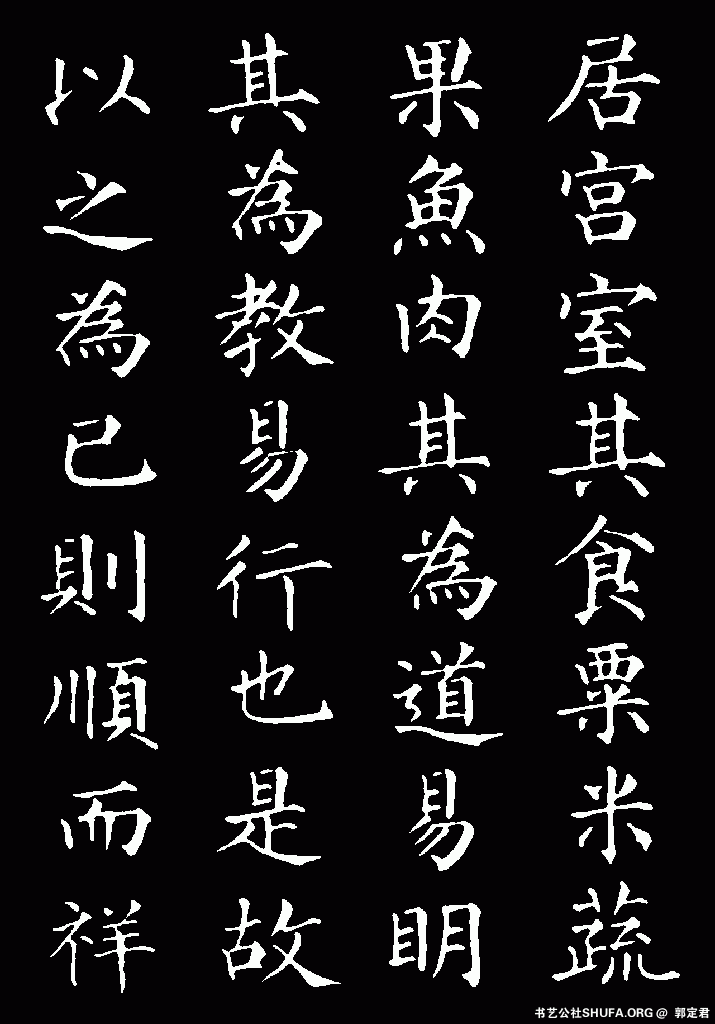 居宫室其食粟米蔬
果魚肉其為道易明
其為教易行也是故
以之為己則順而祥
书艺公社SHUFA.ORG @ 郭定君